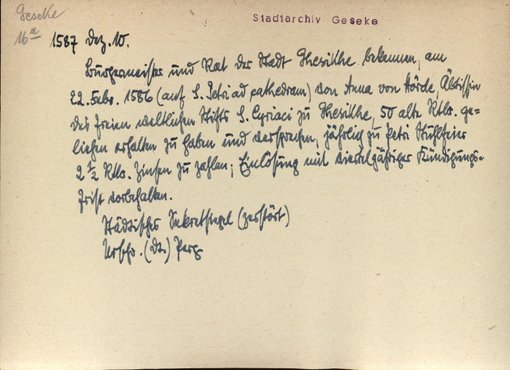 Geseke
Stadtarchiv Geseke
16a
1587 Dez. 10.
Bürgermeister und Rat der Stadt Gheseke bekennen, am
22. Febr. 1586 (auf S. Petri ad cathedram) von Anna von Hörde, Äbtissin
des freien weltlichen Stifts S. Cyriaci zu Gheseke, 50 alte Rtlr. ge-
liehen erhalten zu haben und versprechen, jährlich zu Petri Stuhlfeier
2 ½ Rtlr. Zinsen zu zahlen; Einlösung mit vierteljähriger Kündigungs-
frist vorbehalten.
Städtisches Sekretsiegel (zerstört)
Urschr. (dt.) Perg